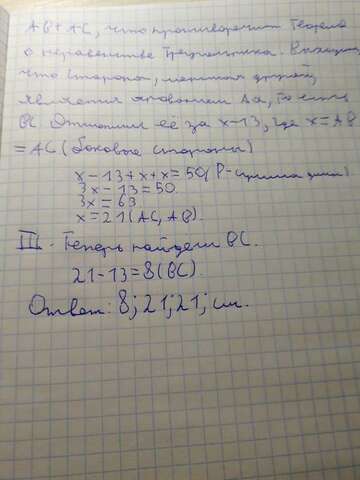 AB + AC, что противоречит Теореме
о неравенстве Треугольника. Выходит,
что Сторона, меньшая другой,
является основанием Δa, То есть
BC. Отметим её за x-13, где x = AB
= AC (боковые стороны)
x - 13 + x + x = 50(P-
3x - 13 = 50.
3x = 63.
x = 21 (AC, AB).
III. Теперь найдем BC.
21 - 13 = 8 (BC).
Ответ: 8; 21; 21; см.